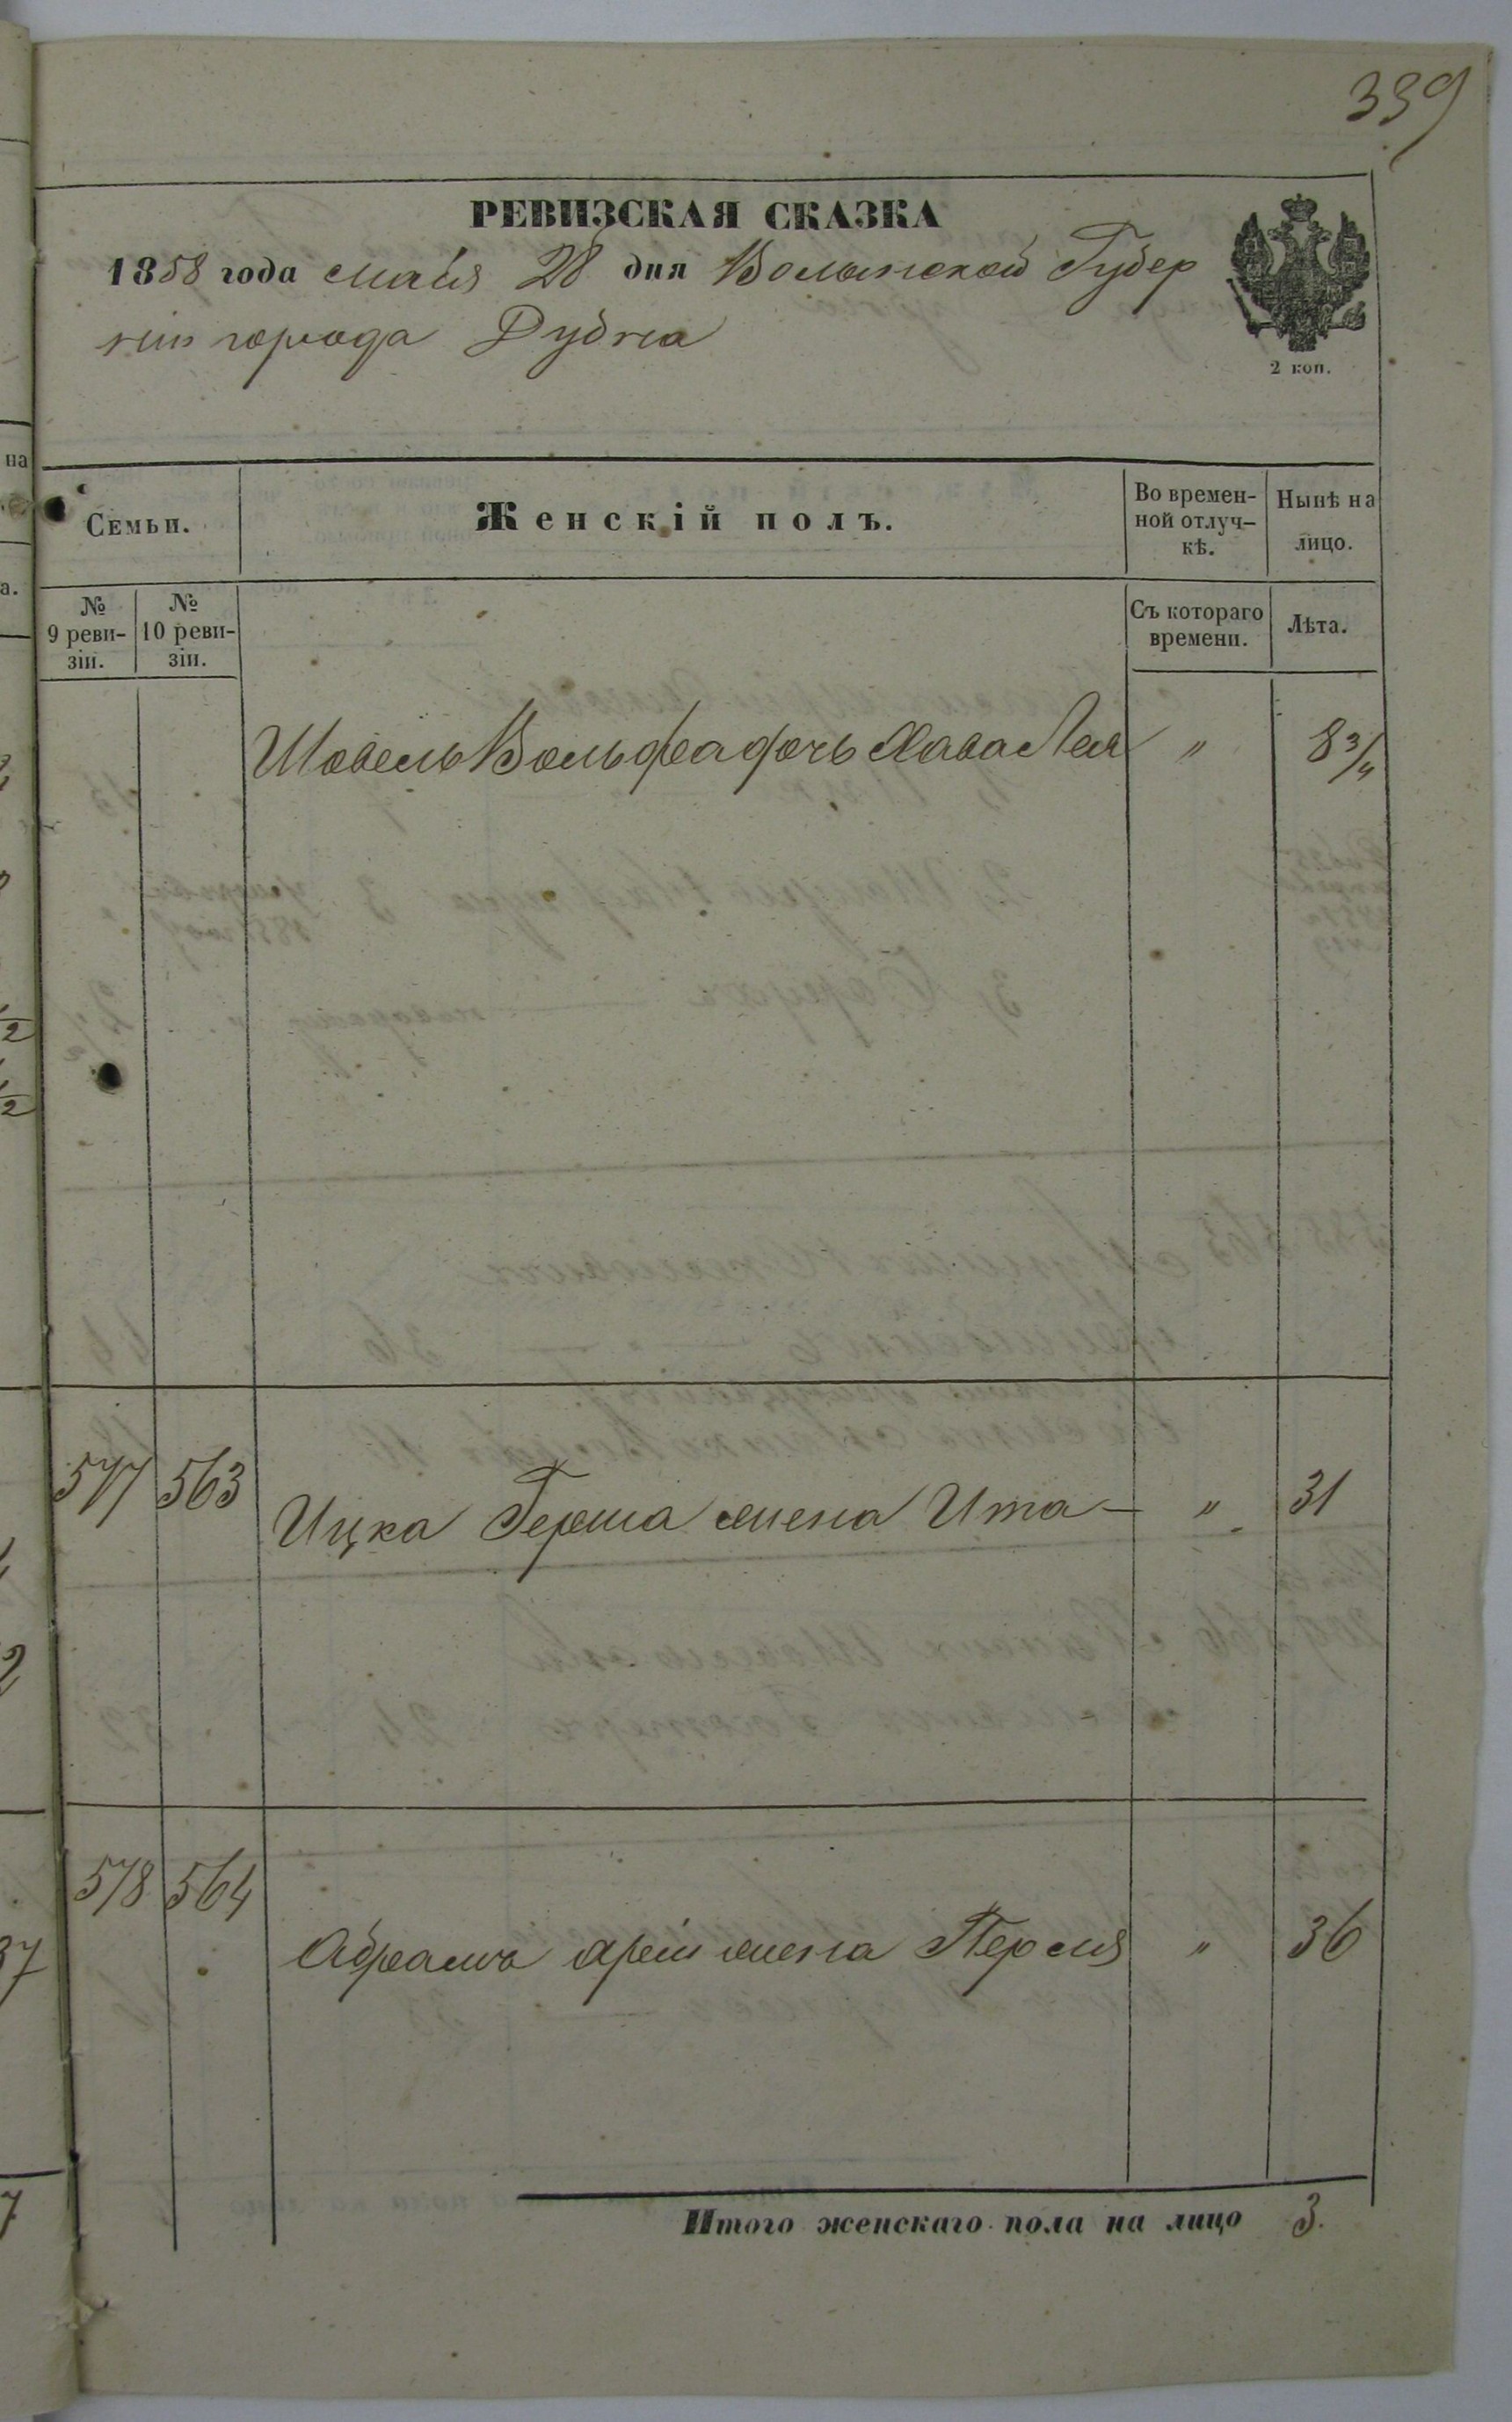 339
РЕВИЗСКАЯ СКАЗКА
1858 года Маія 28 дня Волынской Губер
ніи города Дубна
2 коп.
Семьи.
Женскій полъ.
Во времен-
ной отлуч-
кѣ.
Нынѣ на
лицо.
№
9 реви-
зіи.
№
10 реви-
зіи.
Съ котораго
времени.
Лѣта.
Шовель Вольфа дочь Хава Лея " 8 3/4
577 563 Ицка Герша жена Ита — " 31
578 564 Абрамъ жена Перля " 36
Итого женскаго пола на лицо 3.